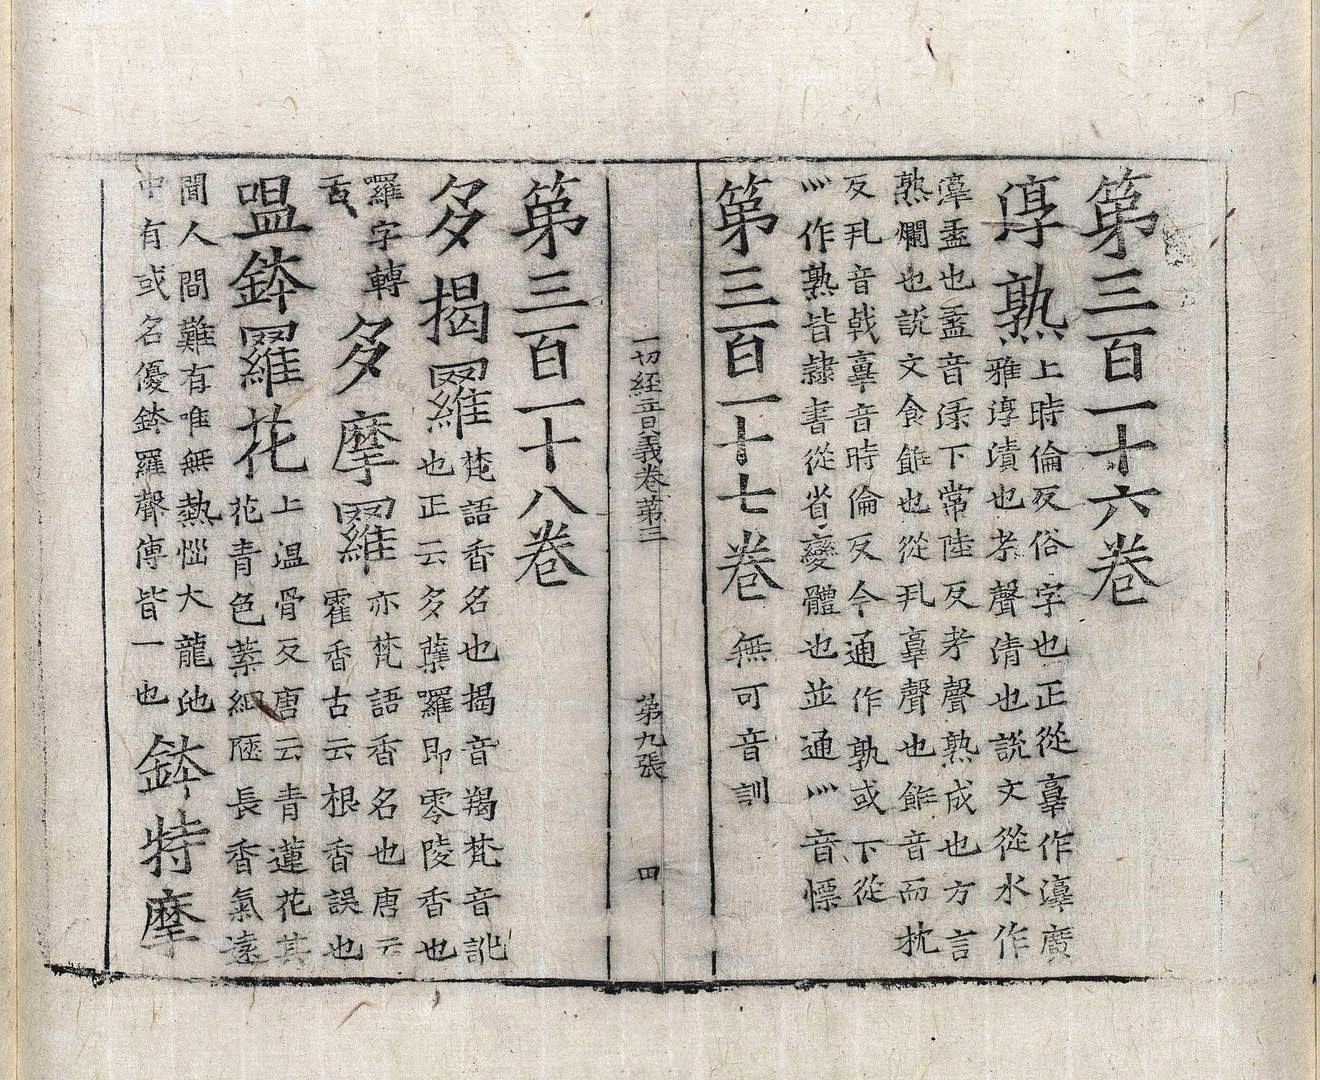 第三百一十六卷
淳熟上時倫反俗字也正從𦎧作𣿌廣
雅淳漬也孝聲清也說文從水作
𣿌盝也盝音渌下常陸反考聲熟成也方言
熟爛也說文食飪也從丮𦎧聲也飪音而枕
反丮音戟𦎧音時倫反今通作孰或下從
灬作熟皆隷書從省變體也並通灬音慓
第三百一十七卷 無可音訓
一切經音義卷第三 第九張 四
第三百一十八卷
多揭羅梵語香名也揭音羯梵音訛
也正云多蘖囉即零陵香也
囉字轉
舌 多摩羅亦梵語香名也唐云
藿香古云根香誤也
嗢鉢羅花上温骨反唐云青蓮花其
花青色葉細陿長香氣遠
聞人間難有唯無熱惱大龍池
中有或名優鉢羅聲傳皆一也 鉢特摩